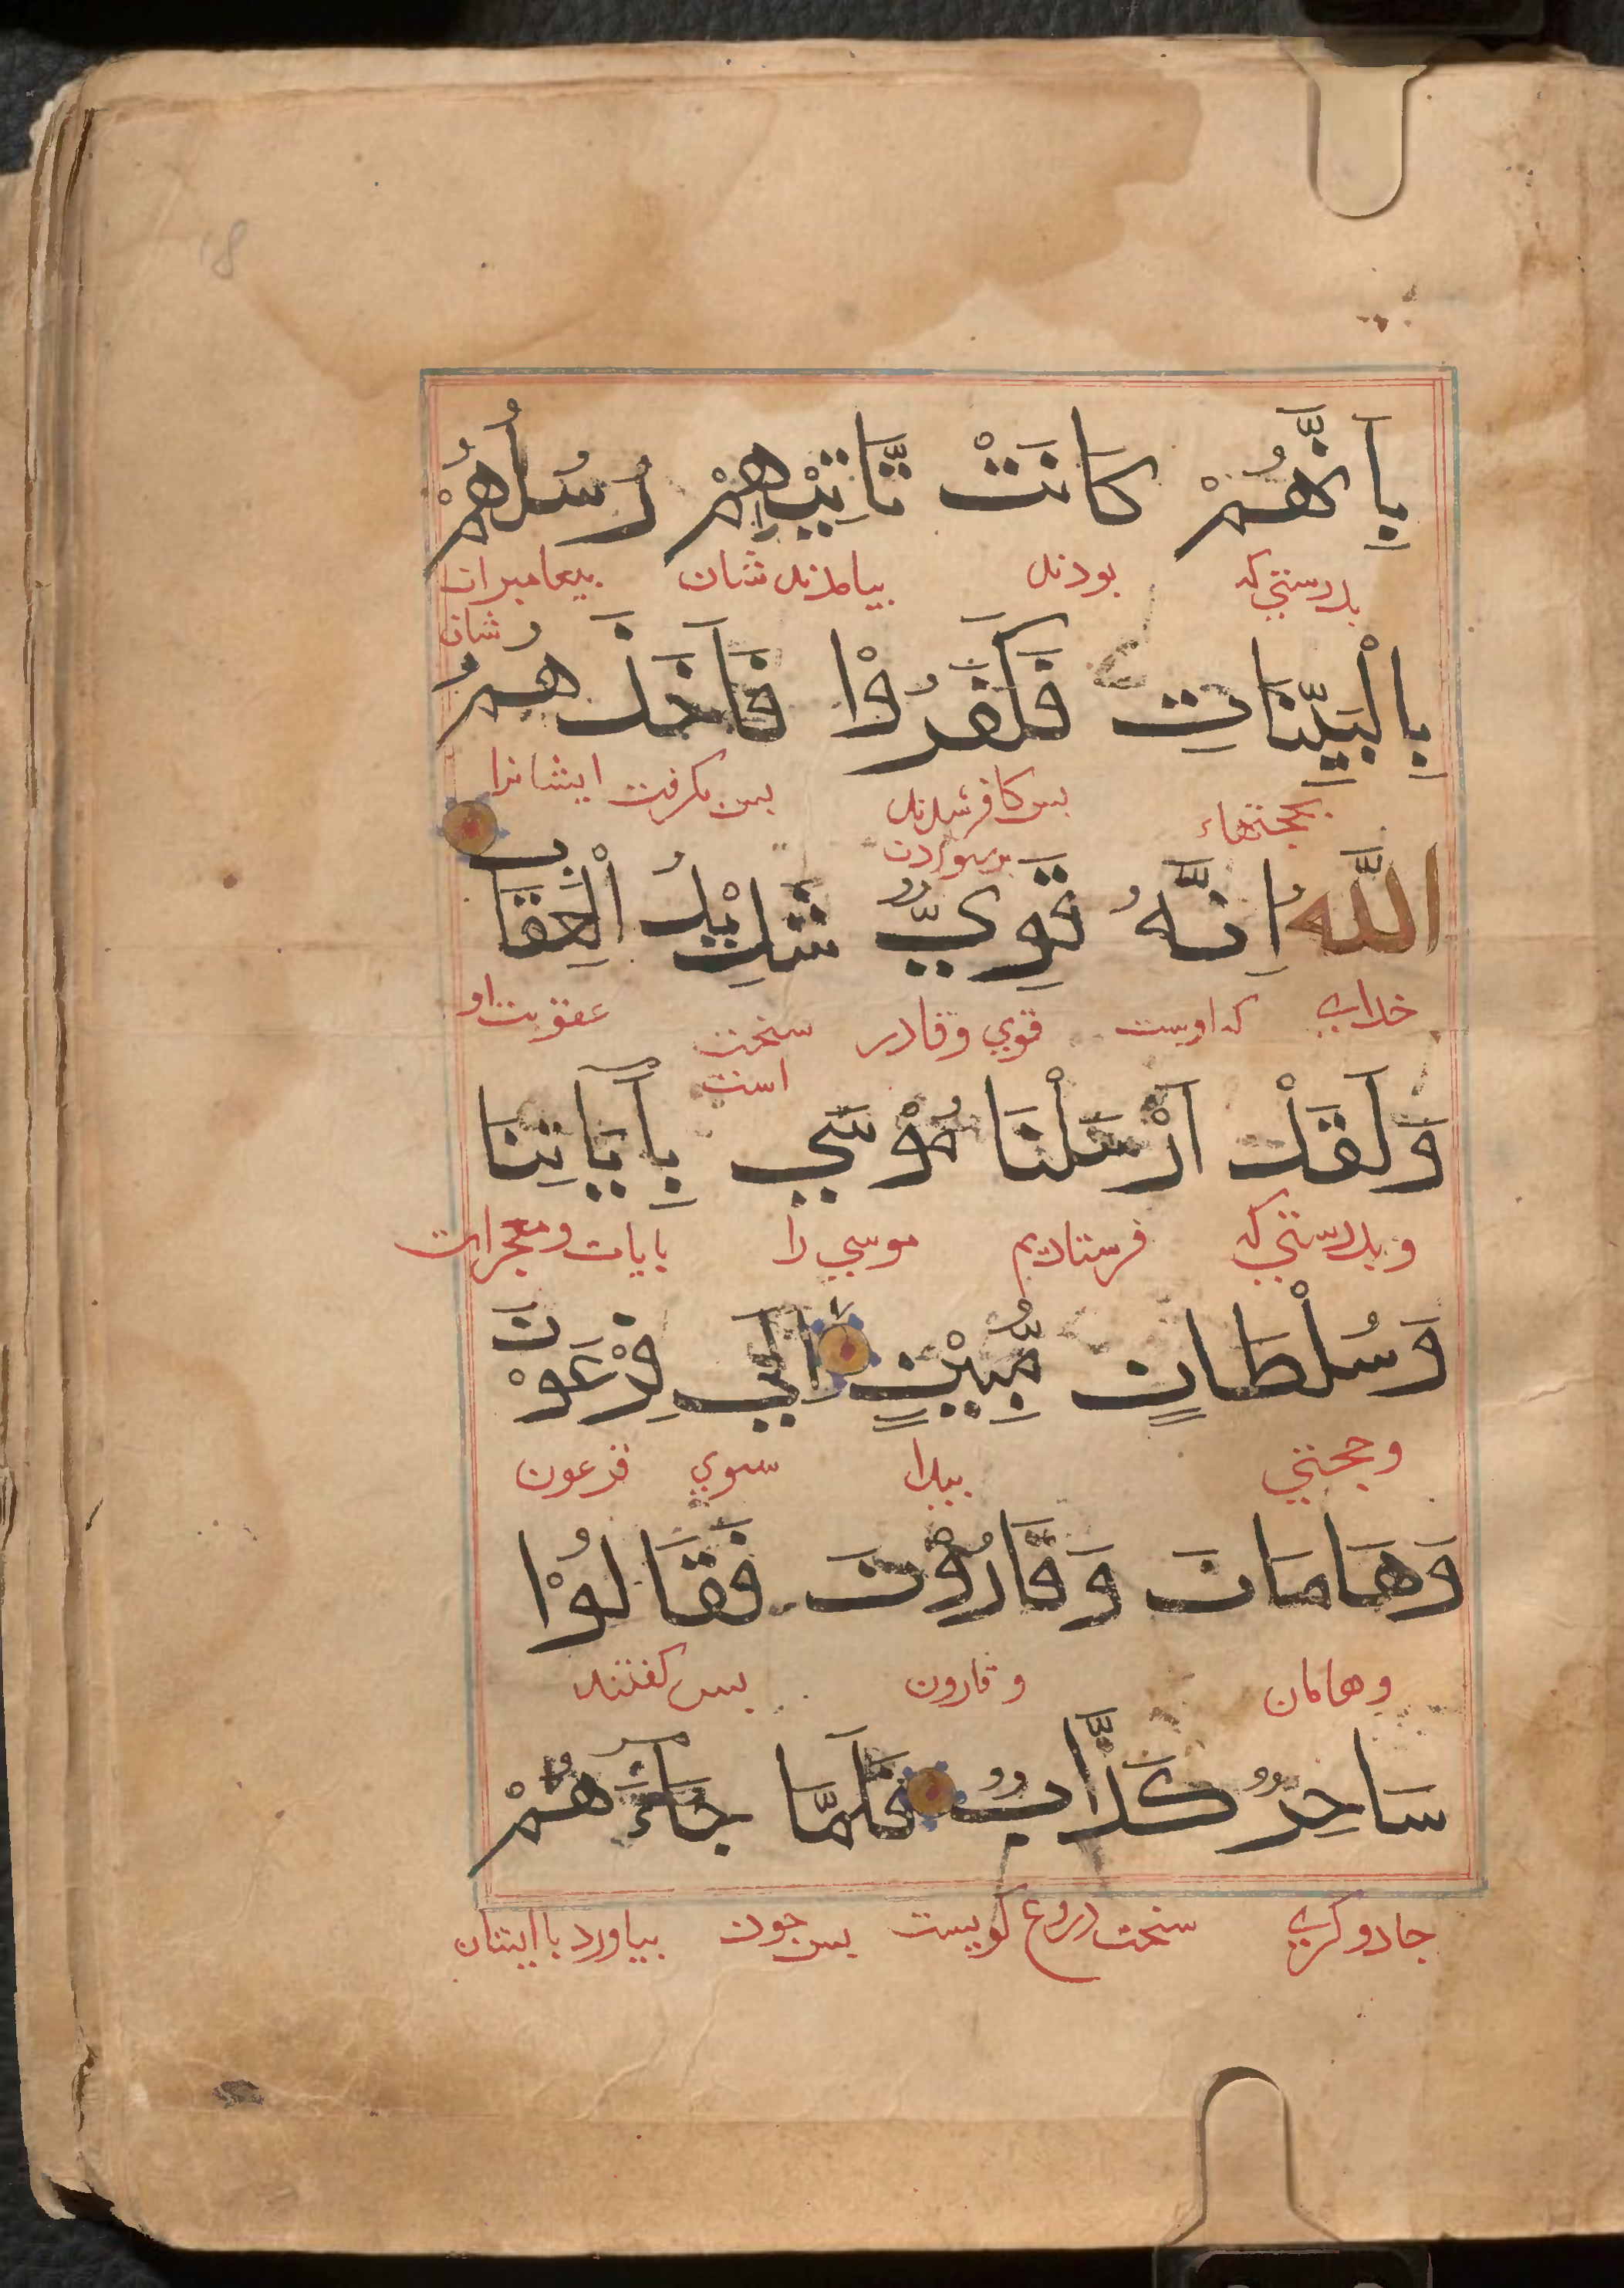 بِاَنَّهُمْ كَانَتْ تَّاتِيْهِمْ رُسُلُهُمْ
بدرستي كه بودند بيامدندشان بيغامبران
شان
بِالْبَيِّنَاتِ فَكَفَرُوْا فَاَخَذَهُمُ
بحجتهاء بس كافر شدند بس بگرفت ايشانرا
اللّٰهُ اِنَّهُ قَوِيٌّ شَدِيْدُ الْعِقَابِ
خداي كه اوست قوي وقادر سخت عقوبت او
است
وَلَقَدْ اَرْسَلْنَا مُوْسَي بِاٰيَاتِنَا
وبدرستي كه فرستاديم موسي را بايات ومعجزات
وَسُلْطَانٍ مُّبِيْنٍ اِلَي فِرْعَوْنَ
وحجتي بيدا سوي فرعون
وَهَامَانَ وَقَارُوْنَ فَقَالُوْا
وهامان وقارون بس گفتند
سَاحِرٌ كَذَّابٌ فَلَمَّا جَاءَهُمْ
جادوگري سخت دروغ گويست بس چون بياورد باايشان
18